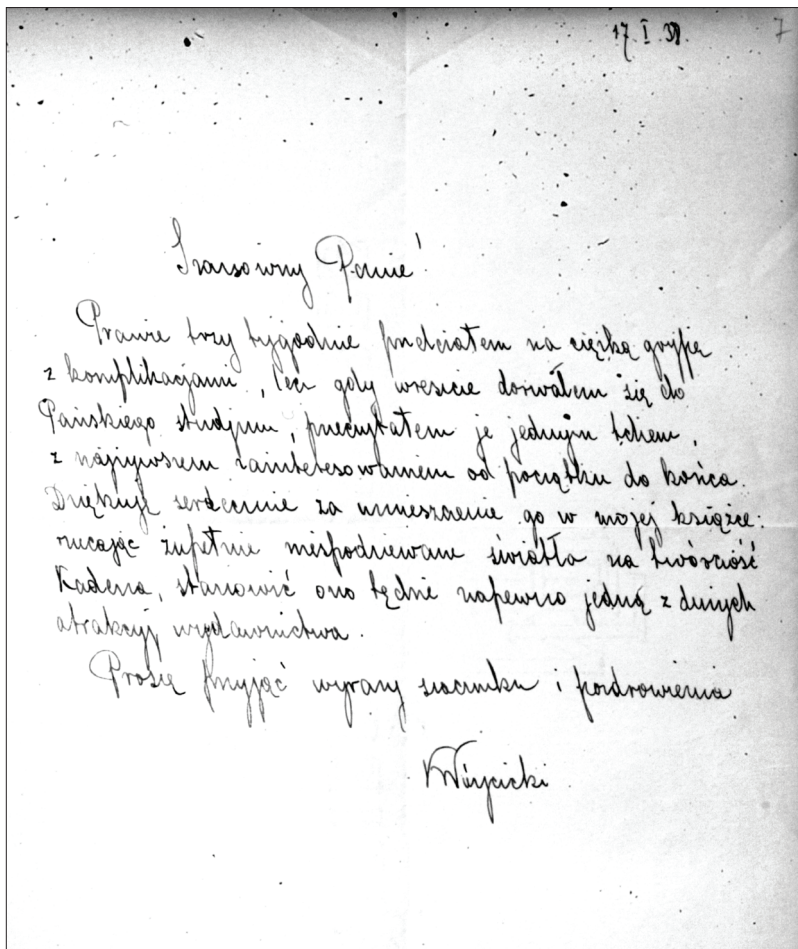 17. I. 38. 7
Szanowny Panie!
Prawie trzy tygodnie przeleżałem na ciężką grypę
z komplikacjami, lecz gdy wreszcie dorwałem się do
Pańskiego studjum, przeczytałem je jednym tchem,
z najżywszem zainteresowaniem od początku do końca.
Dziękuję serdecznie za umieszczenie go w mojej książce:
rzucając zupełnie niespodziewane światła na twórczość
Kadena, stanowić ono będzie napewno jedną z dużych
atrakcyj wydawnictwa.
Proszę przyjąć wyrazy szacunku i pozdrowienia
KWóycicki